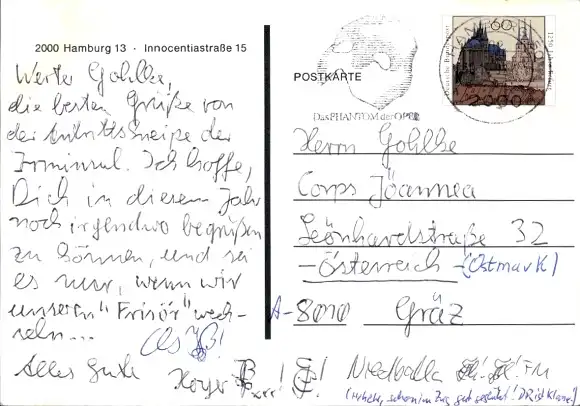 2000 Hamburg 13 · Innocentiastraße 15
Werter Gohlke,
die besten Grüße von
der Antrittskneipe der
Irminsul. Ich hoffe,
Dich in diesem Jahr
noch irgendwo begrüßen
zu können, und sei
es nur, wenn wir
unseren "Frisör" wech-
seln...
Alles Gute
POSTKARTE
60
Das PHANTOM der OPER
2000
Herrn Gohlke
Corps Joannea
Leonhardstraße 32
-Österreich -(Ostmark)
A-8010 Graz
Niedballa
FM